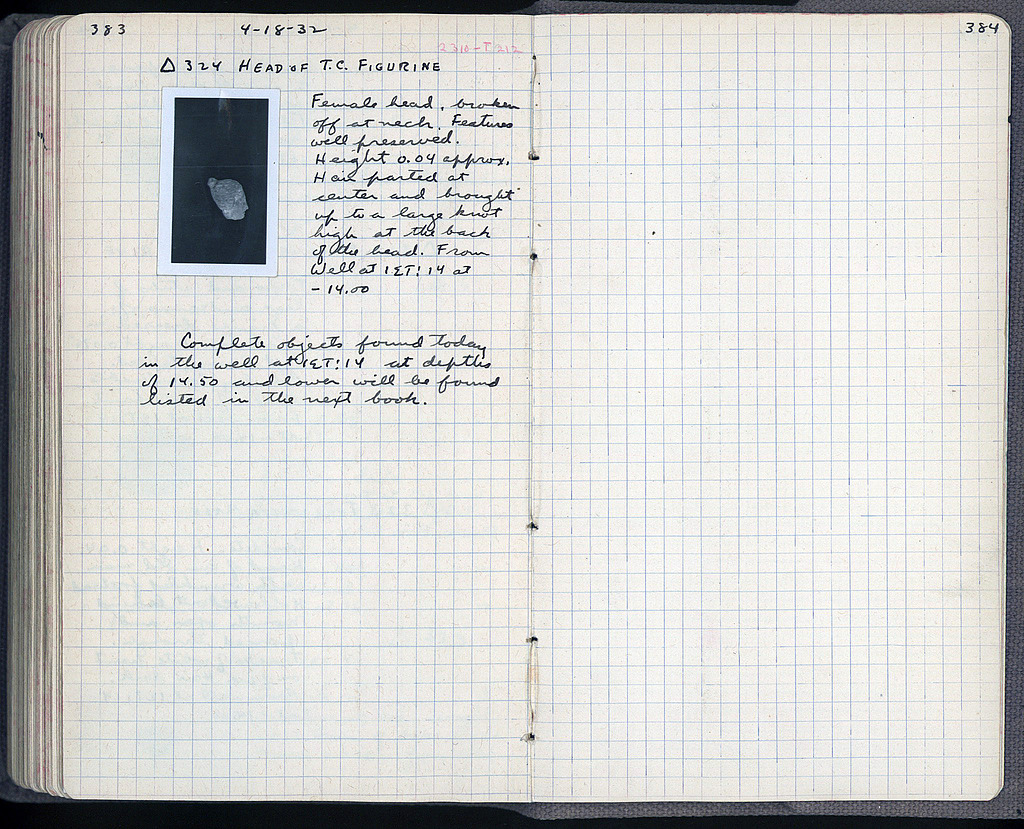 383
4-18-32
384
2310-T 212
Δ 324 HEAD OF T.C. FIGURINE
Female head, broken
off at neck. Features
well preserved.
Height 0.04 approx.
Hair parted at
center and brought
up to a large knot
high at the back
of the head. From
Well at 1ΣT:14 at
– 14.00
Complete objects found today
in the well at 1ΣT:14 at depths
of 14.50 and lower will be found
listed in the next book.